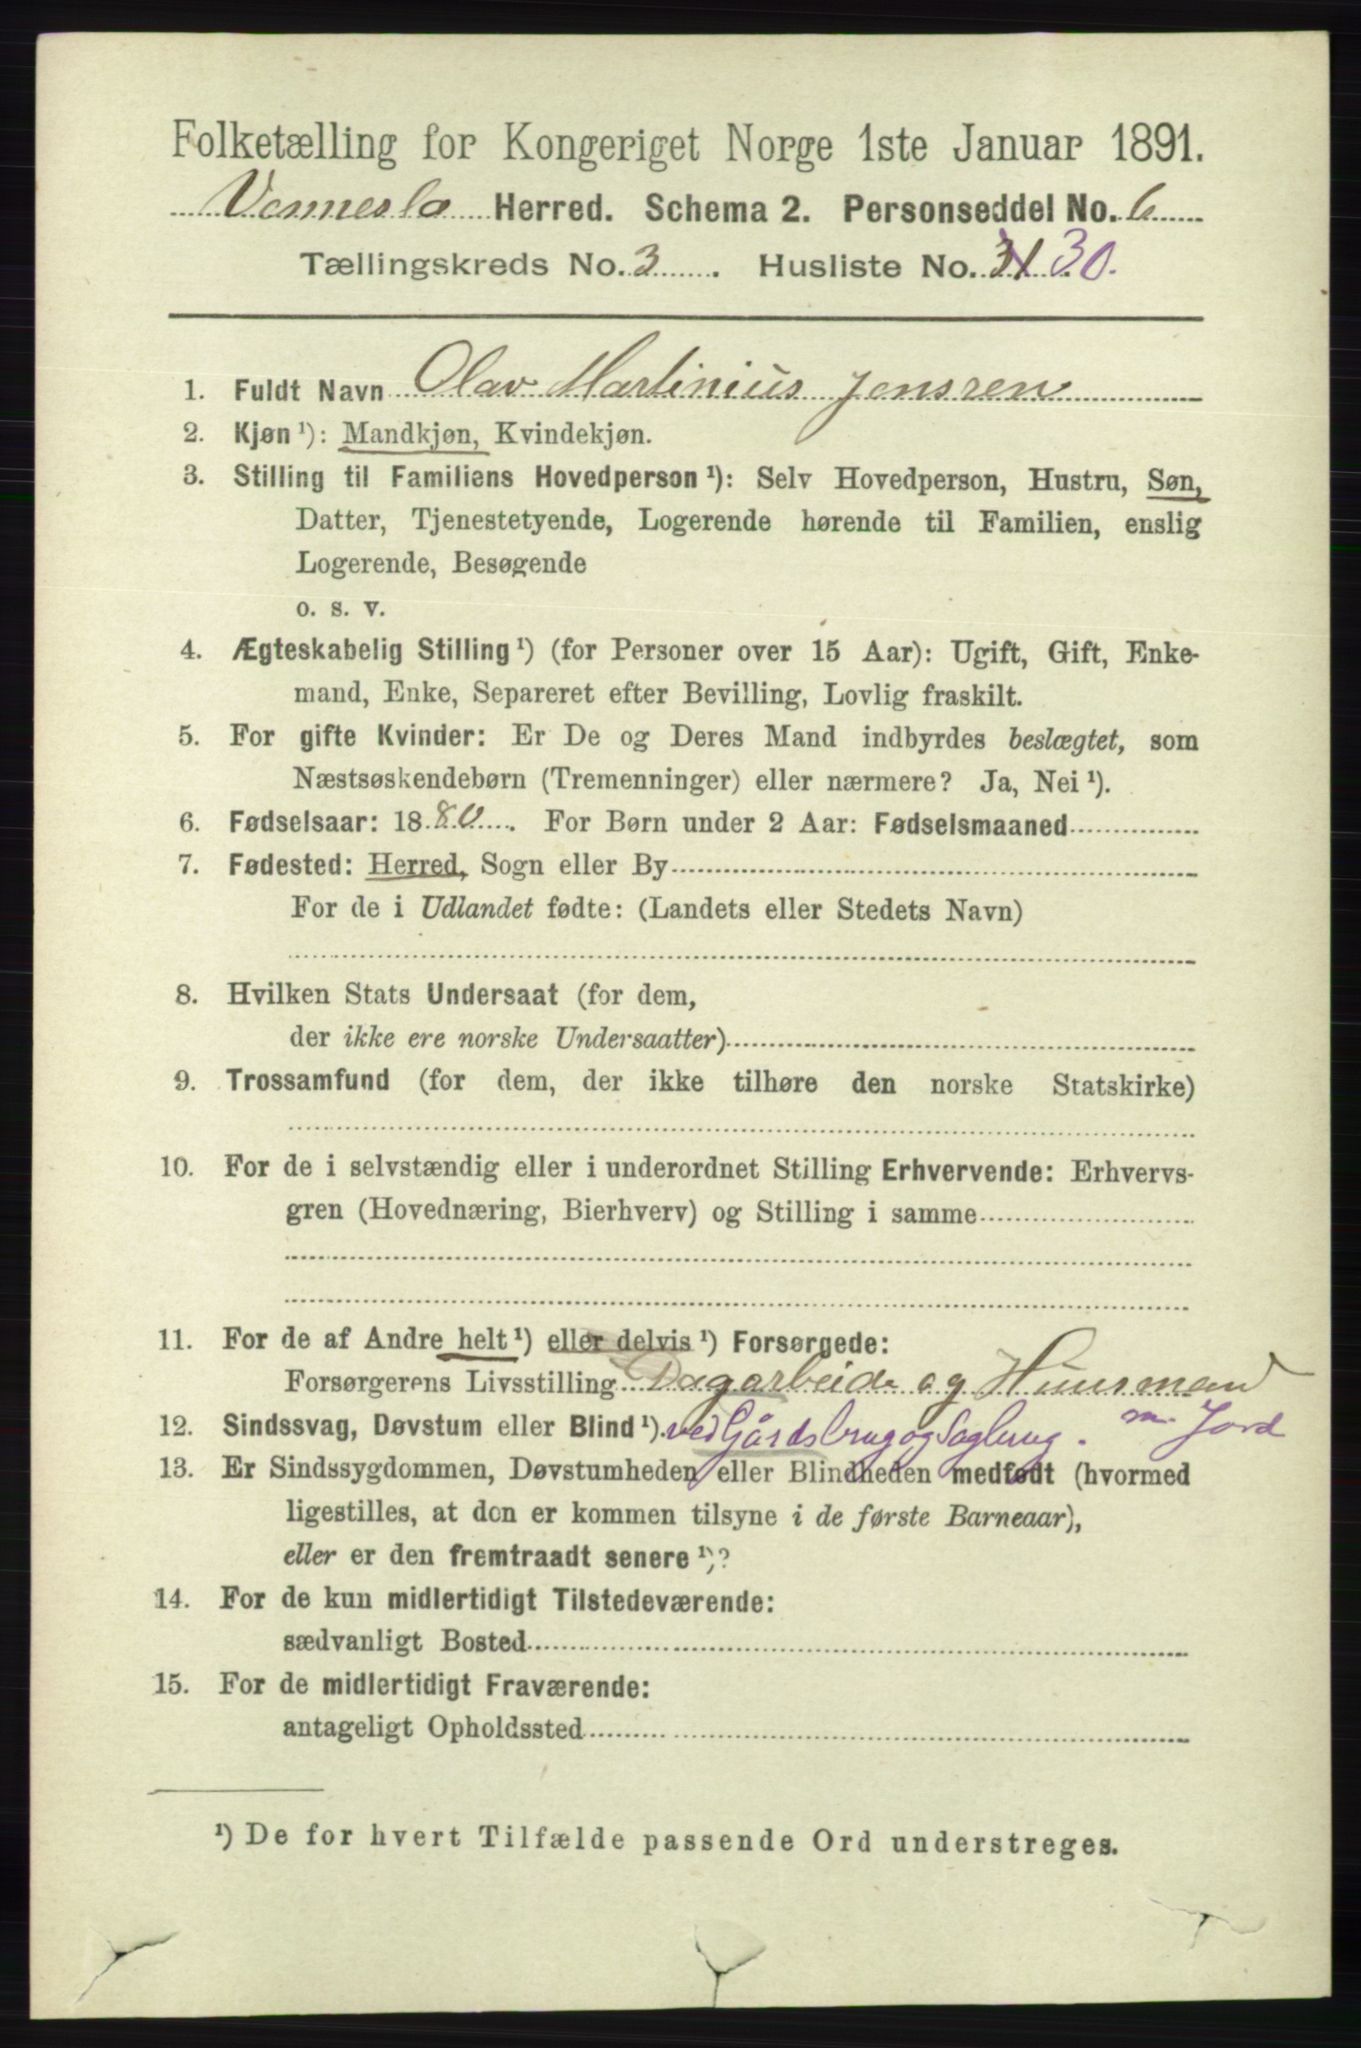 Folketælling for Kongeriget Norge 1ste Januar 1891.
Vennesla Herred. Schema 2. Personseddel No. 6
Tællingskreds No. 3. Husliste No. 31 30.
1. Fuldt Navn Olav Martinius Jensren
2. Kjøn ¹): Mandkjøn, Kvindekjøn.
3. Stilling til Familiens Hovedperson ¹): Selv Hovedperson, Hustru, Søn,
Datter, Tjenestetyende, Logerende hørende til Familien, enslig
Logerende, Besøgende
o. s. v.
4. Ægteskabelig Stilling ¹) (for Personer over 15 Aar): Ugift, Gift, Enke-
mand, Enke, Separeret efter Bevilling, Lovlig fraskilt.
5. For gifte Kvinder: Er De og Deres Mand indbyrdes beslægtet, som
Næstsøskendebørn (Tremenninger) eller nærmere? Ja, Nei ¹).
6. Fødselsaar: 1880. For Børn under 2 Aar: Fødselsmaaned
7. Fødested: Herred, Sogn eller By
For de i Udlandet fødte: (Landets eller Stedets Navn)
8. Hvilken Stats Undersaat (for dem,
der ikke ere norske Undersaatter)
9. Trossamfund (for dem, der ikke tilhøre den norske Statskirke)
10. For de i selvstændig eller i underordnet Stilling Erhvervende: Erhvervs-
gren (Hovednæring, Bierhverv) og Stilling i samme
11. For de af Andre helt ¹) eller delvis ¹) Forsørgede:
Forsørgerens Livsstilling Dagarbeide og Huusmand
12. Sindssvag, Døvstum eller Blind ¹). ved Gårdsbrug og Sagbrug. m. Jord
13. Er Sindssygdommen, Døvstumheden eller Blindheden medfødt (hvormed
ligestilles, at den er kommen tilsyne i de første Barneaar),
eller er den fremtraadt senere ¹)?
14. For de kun midlertidigt Tilstedeværende:
sædvanligt Bosted
15. For de midlertidigt Fraværende:
antageligt Opholdssted
¹) De for hvert Tilfælde passende Ord understreges.